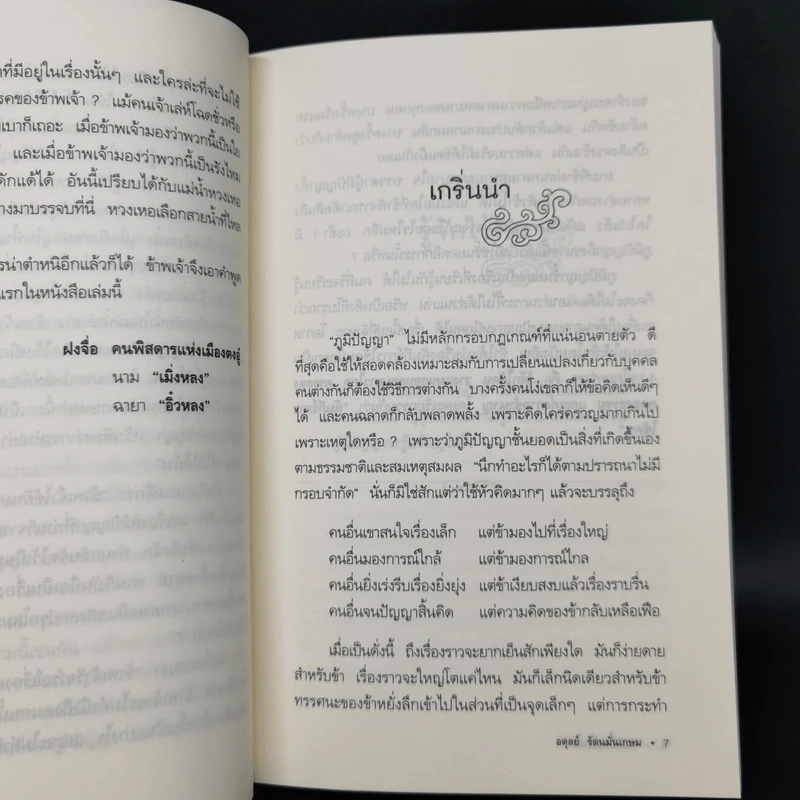 ที่มีอยู่ในเรื่องนั้นๆ และใครล่ะที่จะไม่ใช้
รคของข้าพเจ้า ? แม้คนเจ้าเล่ห์โฉดชั่วหรือ
เบาก็เถอะ เมื่อข้าพเจ้ามองว่าพวกนี้เป็นใย
และเมื่อข้าพเจ้ามองว่าพวกนี้เป็นรังไหม
ดักแด้ได้ อันนี้เปรียบได้กับแม่น้ำหวงเหอ
างมาบรรจบที่นี่ หวงเหอเลือกสายน้ำที่ไหล
รน่าตำหนิอีกแล้วก็ได้ ข้าพเจ้าจึงเอาคำพูด
แรกในหนังสือเล่มนี้
ฝงจื่อ คนพิสดารแห่งเมืองตงอู๋
นาม “เมิ่งหลง”
ฉายา “อิ๋วหลง”
เกริ่นนำ
“ภูมิปัญญา” ไม่มีหลักกรอบกฎเกณฑ์ที่แน่นอนตายตัว ดี
ที่สุดคือใช้ให้สอดคล้องเหมาะสมกับการเปลี่ยนแปลงเกี่ยวกับบุคคล
คนต่างกันก็ต้องใช้วิธีการต่างกัน บางครั้งคนโง่เขลาก็ให้ข้อคิดเห็นดีๆ
ได้ และคนฉลาดก็กลับพลาดพลั้ง เพราะคิดใคร่ครวญมากเกินไป
เพราะเหตุใดหรือ ? เพราะว่าภูมิปัญญาชั้นยอดเป็นสิ่งที่เกิดขึ้นเอง
ตามธรรมชาติและสมเหตุสมผล “นึกทำอะไรก็ได้ตามปรารถนาไม่มี
กรอบจำกัด” นั่นก็มิใช่สักแต่ว่าใช้หัวคิดมากๆ แล้วจะบรรลุถึง
คนอื่นเขาสนใจเรื่องเล็ก แต่ข้ามองไปที่เรื่องใหญ่
คนอื่นมองการณ์ใกล้ แต่ข้ามองการณ์ไกล
คนอื่นยิ่งเร่งรีบเรื่องยิ่งยุ่ง แต่ข้าเงียบสงบแล้วเรื่องราบรื่น
คนอื่นจนปัญญาสิ้นคิด แต่ความคิดของข้ากลับเหลือเฟือ
เมื่อเป็นดั่งนี้ ถึงเรื่องราวจะยากเย็นสักเพียงใด มันก็ง่ายดาย
สำหรับข้า เรื่องราวจะใหญ่โตแค่ไหน มันก็เล็กนิดเดียวสำหรับข้า
ทรรศนะของข้าหยั่งลึกเข้าไปในส่วนที่เป็นจุดเล็กๆ แต่การกระทำ
อดุลย์ รัตนมั่นเกษม • 7